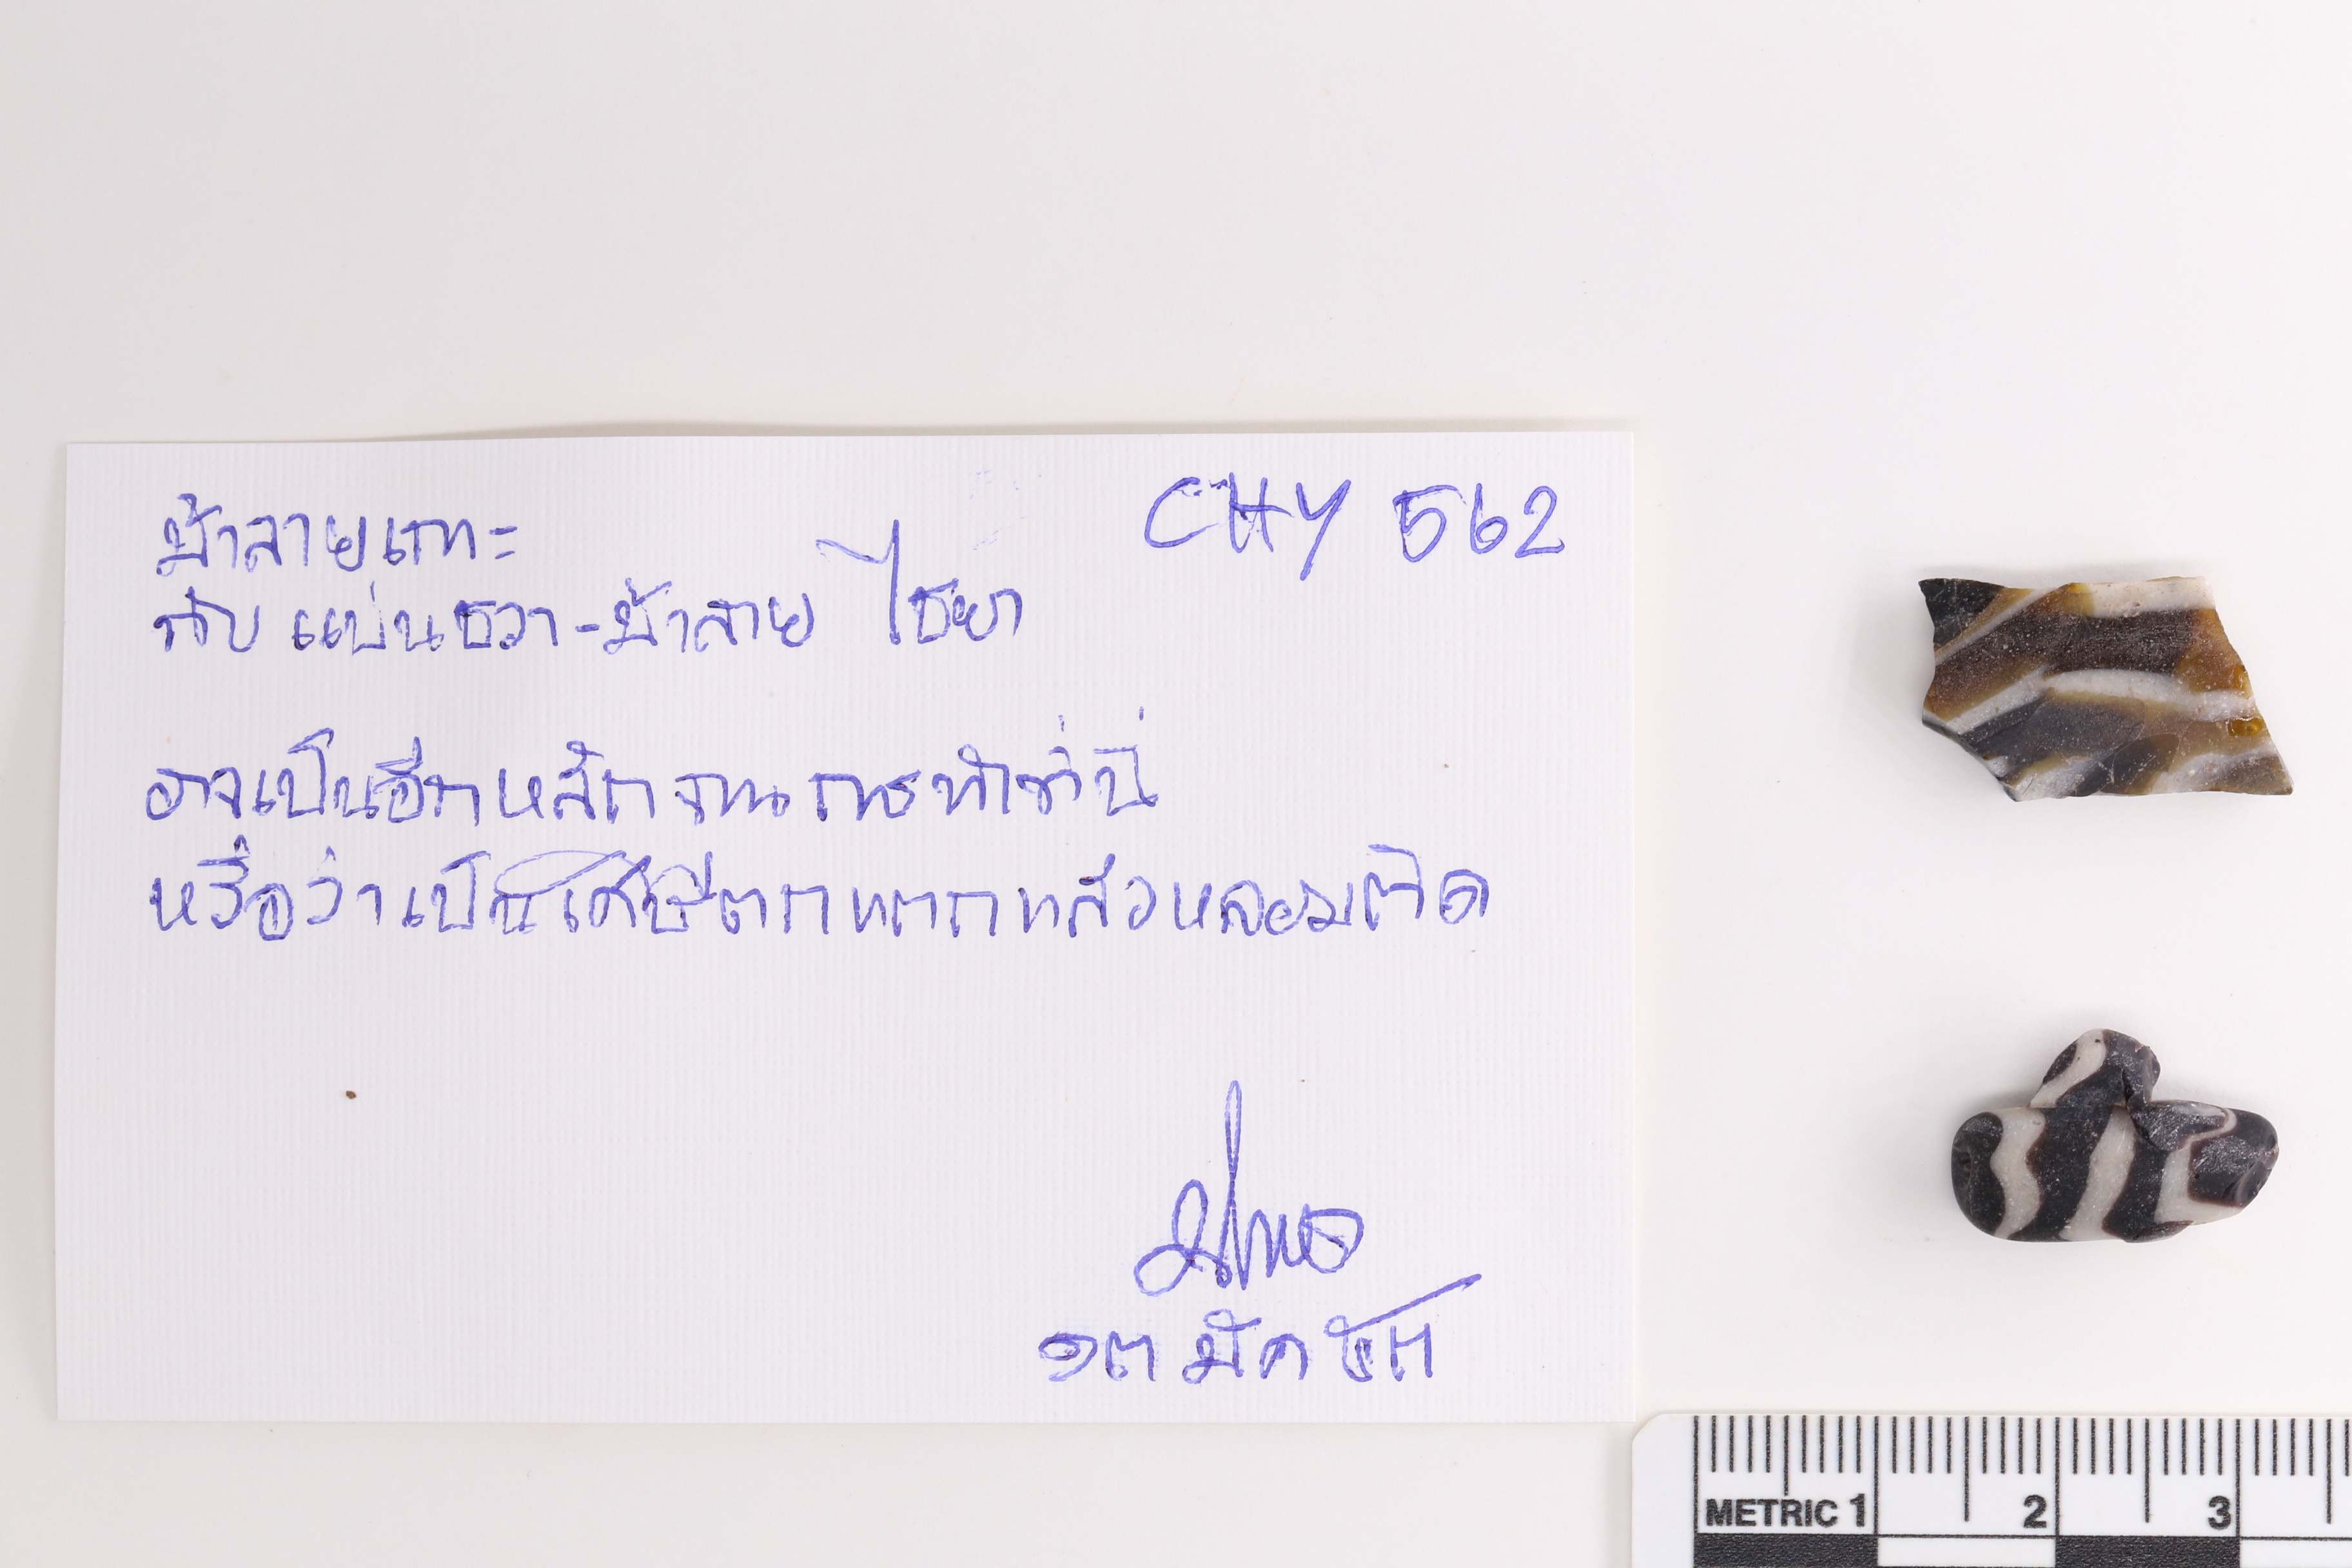 ม้าลายเกาะ CHY 562
กับ แผ่นธวา-ม้าลาย ไชยา
อาจเป็นอีกหลักฐานการทำที่นี่
หรือว่าเป็นเศษีตกแตกแล้วหลอมติด
๑๓ มีค ๖๓
METRIC 1 2 3